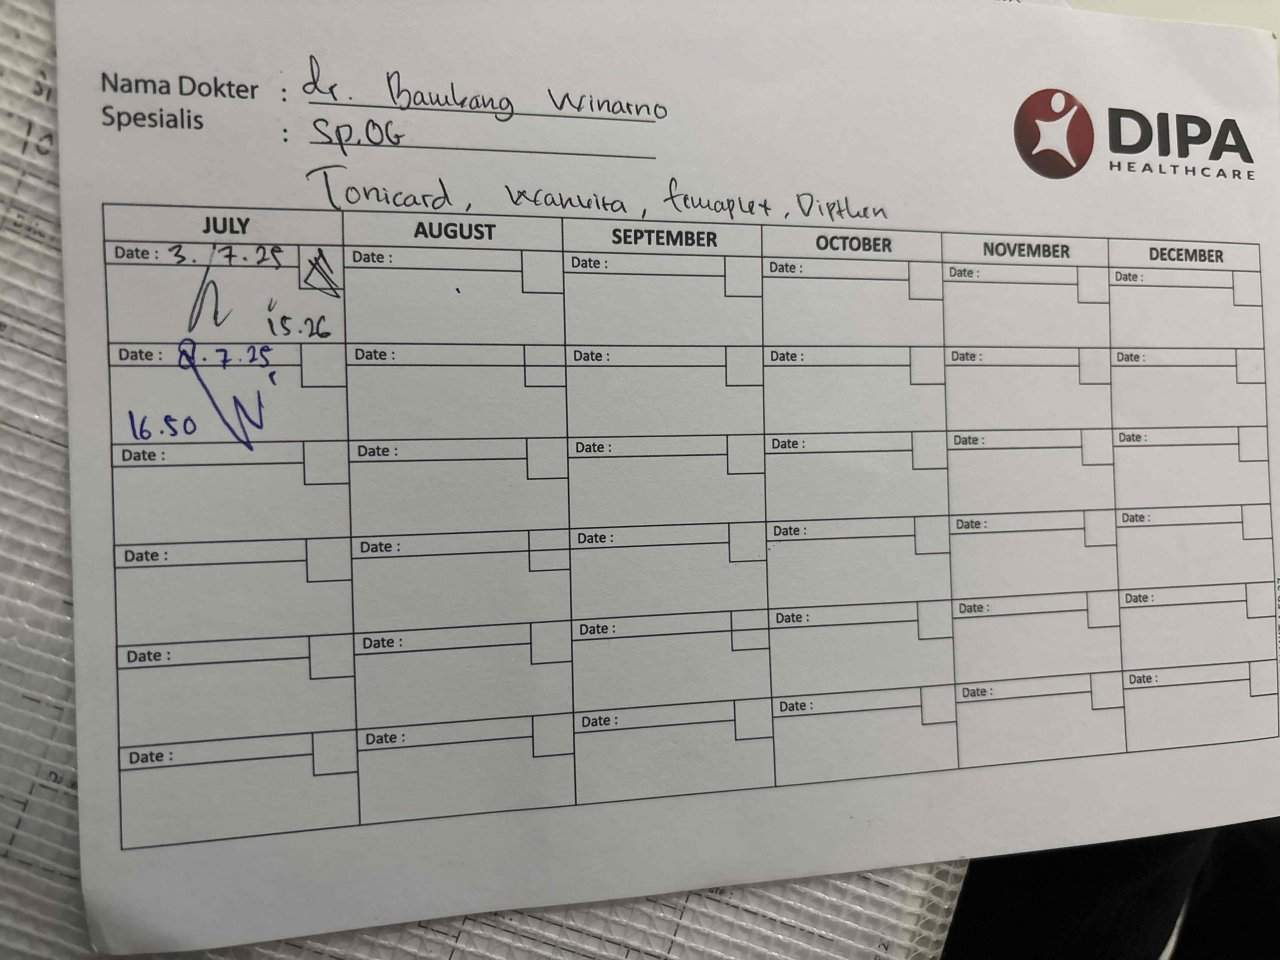 Nama Dokter : dr. Bambang Winarno
Spesialis : Sp.OG
DIPA
HEALTHCARE
Tonicard, femaplex, Dipthen
JULY AUGUST SEPTEMBER OCTOBER NOVEMBER DECEMBER
Date : 3.7.25 Date : Date : Date : Date : Date :
15.26
Date : 8.7.25 Date : Date : Date : Date : Date :
16.50
Date : Date : Date : Date : Date : Date :
Date : Date : Date : Date : Date : Date :
Date : Date : Date : Date : Date : Date :
Date : Date : Date : Date : Date : Date :